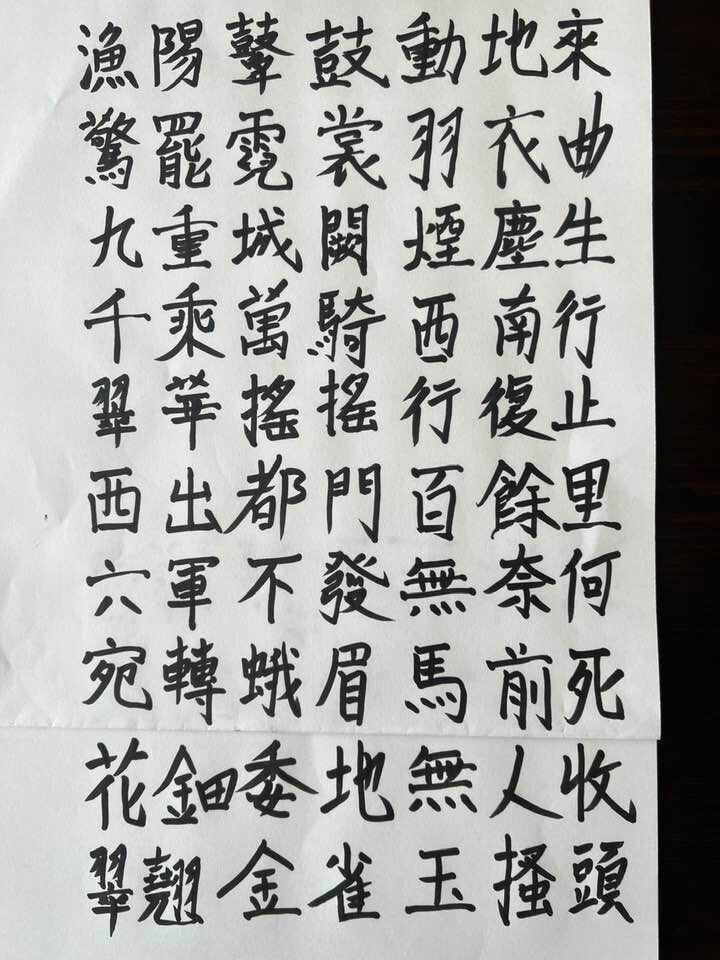 漁陽鼙鼓動地來
驚罷霓裳羽衣曲
九重城闕煙塵生
千乘萬騎西南行
翠華搖搖行復止
西出都門百餘里
六軍不發無奈何
宛轉蛾眉馬前死
花鈿委地無人收
翠翹金雀玉搔頭